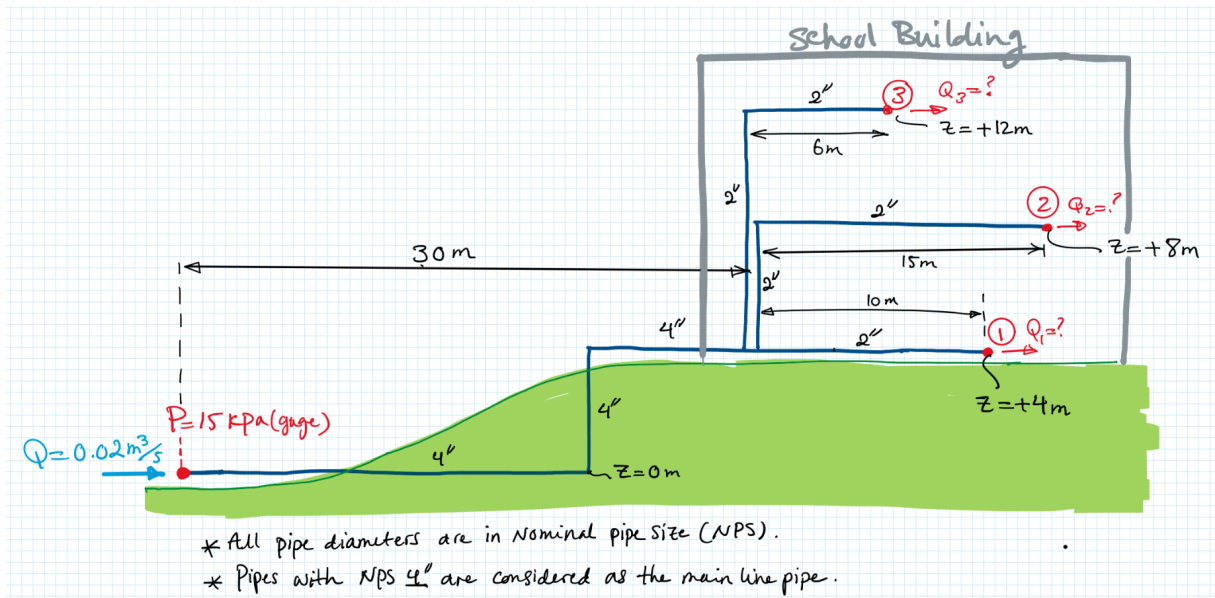 School Building
2"
③ Q₃=?
Z=+12m
6m
2"
2"
② Q₂=?
Z=+8m
15m
30m
2"
10m
4"
① Q₁=?
2"
Z=+4m
4"
P=15 kpa(gage)
Q=0.02m³/s
4"
Z=0m
* All pipe diameters are in Nominal pipe size (NPS).
* Pipes with NPS 4" are considered as the main line pipe.